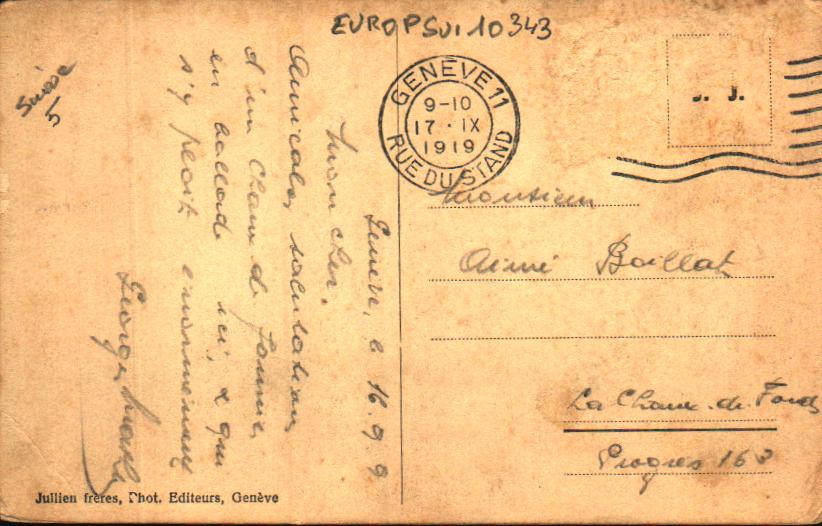 EUROPSUI10343
Suisse
5
GENÈVE 11
9-10
17 · IX
1919
RUE DU STAND
J. J.
Genève, le 16.9.9.
Mon cher,
Amicales salutations
d'un Chaux-de-Fonnier
en ballade ici, & qui
s'y plait énormément
Georges
Monsieur
Aimé Baillat
La Chaux-de-Fonds
Progrès 163
Jullien frères, Phot. Editeurs, Genève